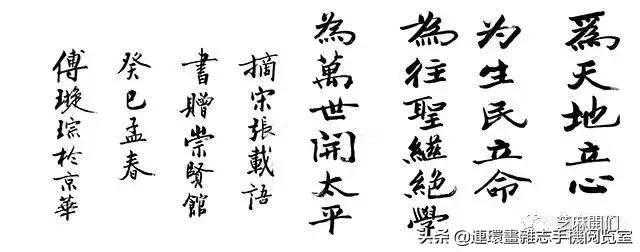 爲天地立心
为生民立命
為往聖繼絕學
為萬世開太平
摘宋張載語
書贈崇賢館
癸巳孟春
傅璇琮於京華
芝麻開们
头条@連環畫雜志手機阅览室